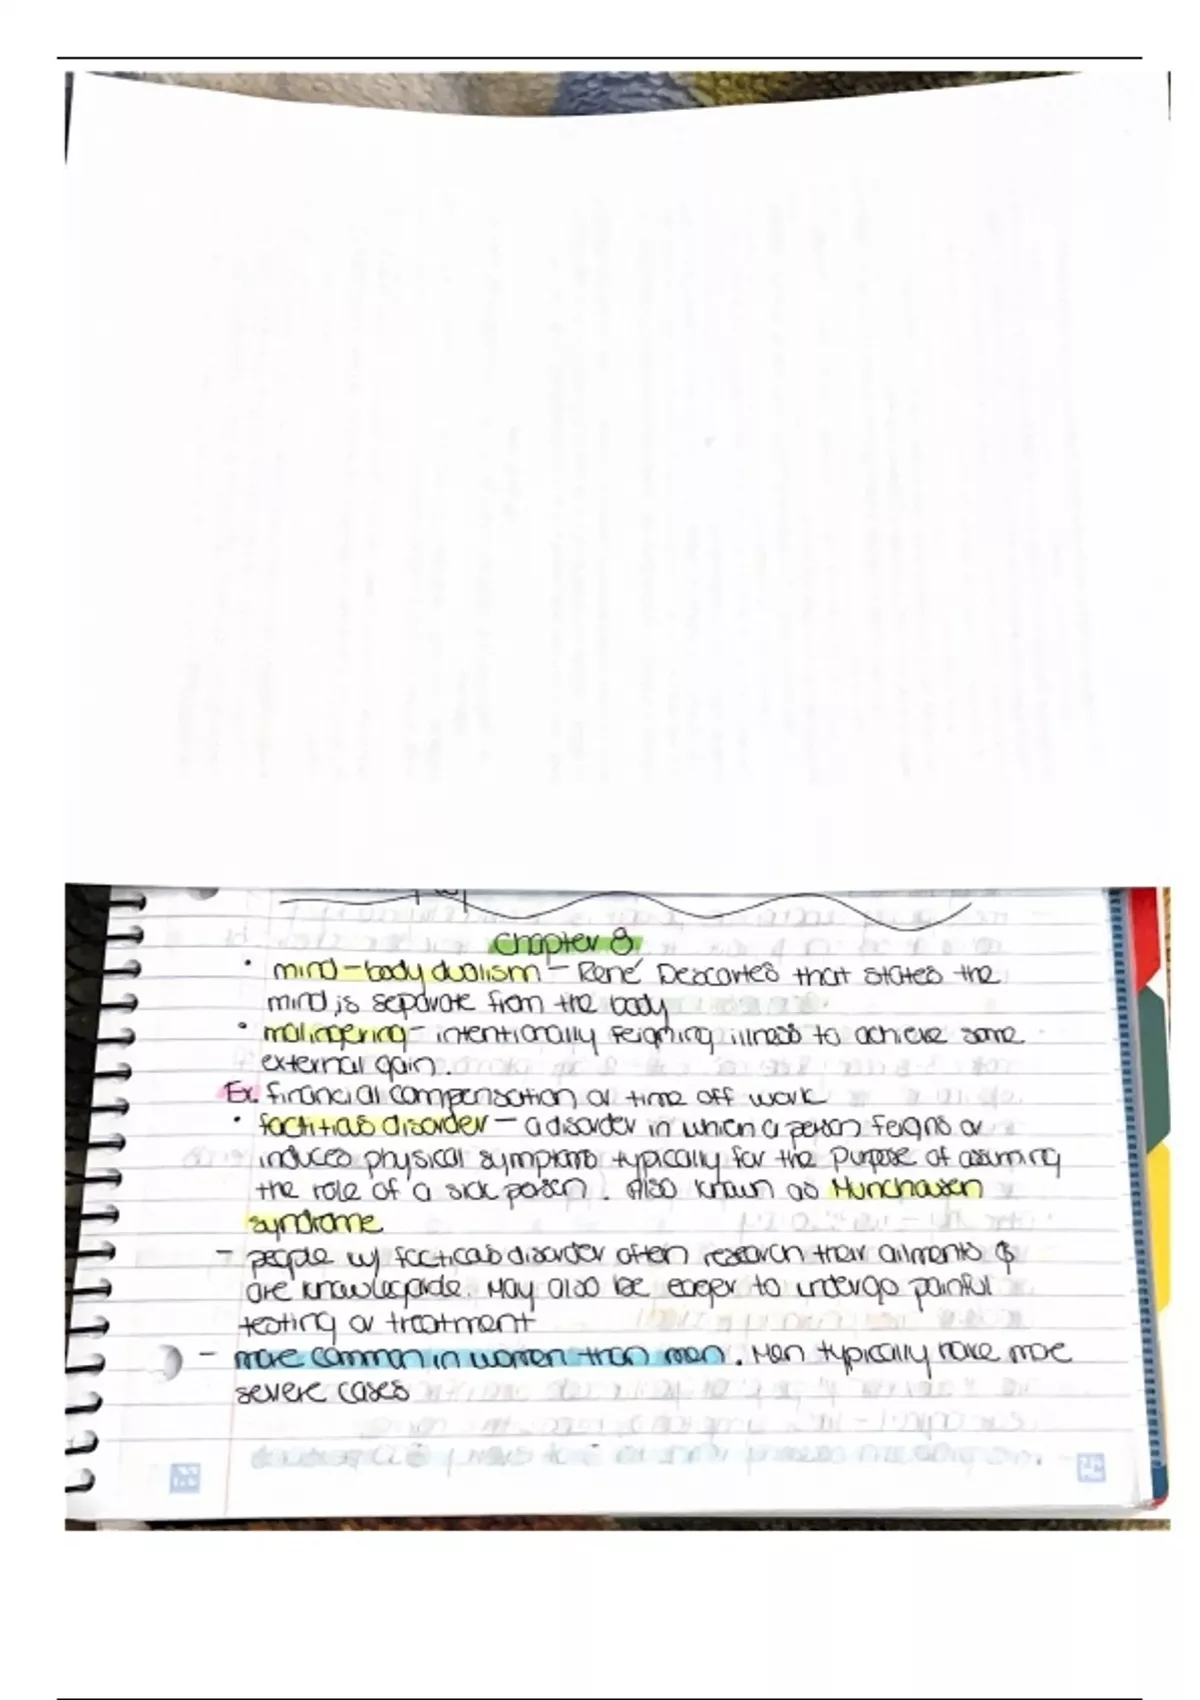 chapter 8
• mind-body dualism - René Descartes that states the
mind is separate from the body
• malingering - intentionally feigning illness to achieve some
external gain.
Ex. financial compensation or time off work
• factitious disorder - a disorder in which a person feigns or
induces physical symptoms typically for the purpose of assuming
the role of a sick person. Also known as Munchausen
syndrome
- people w/ factitious disorder often research their ailments &
are knowlegable. May also be eager to undergo painful
testing or treatment
- more common in women than men. Men typically have more
severe cases